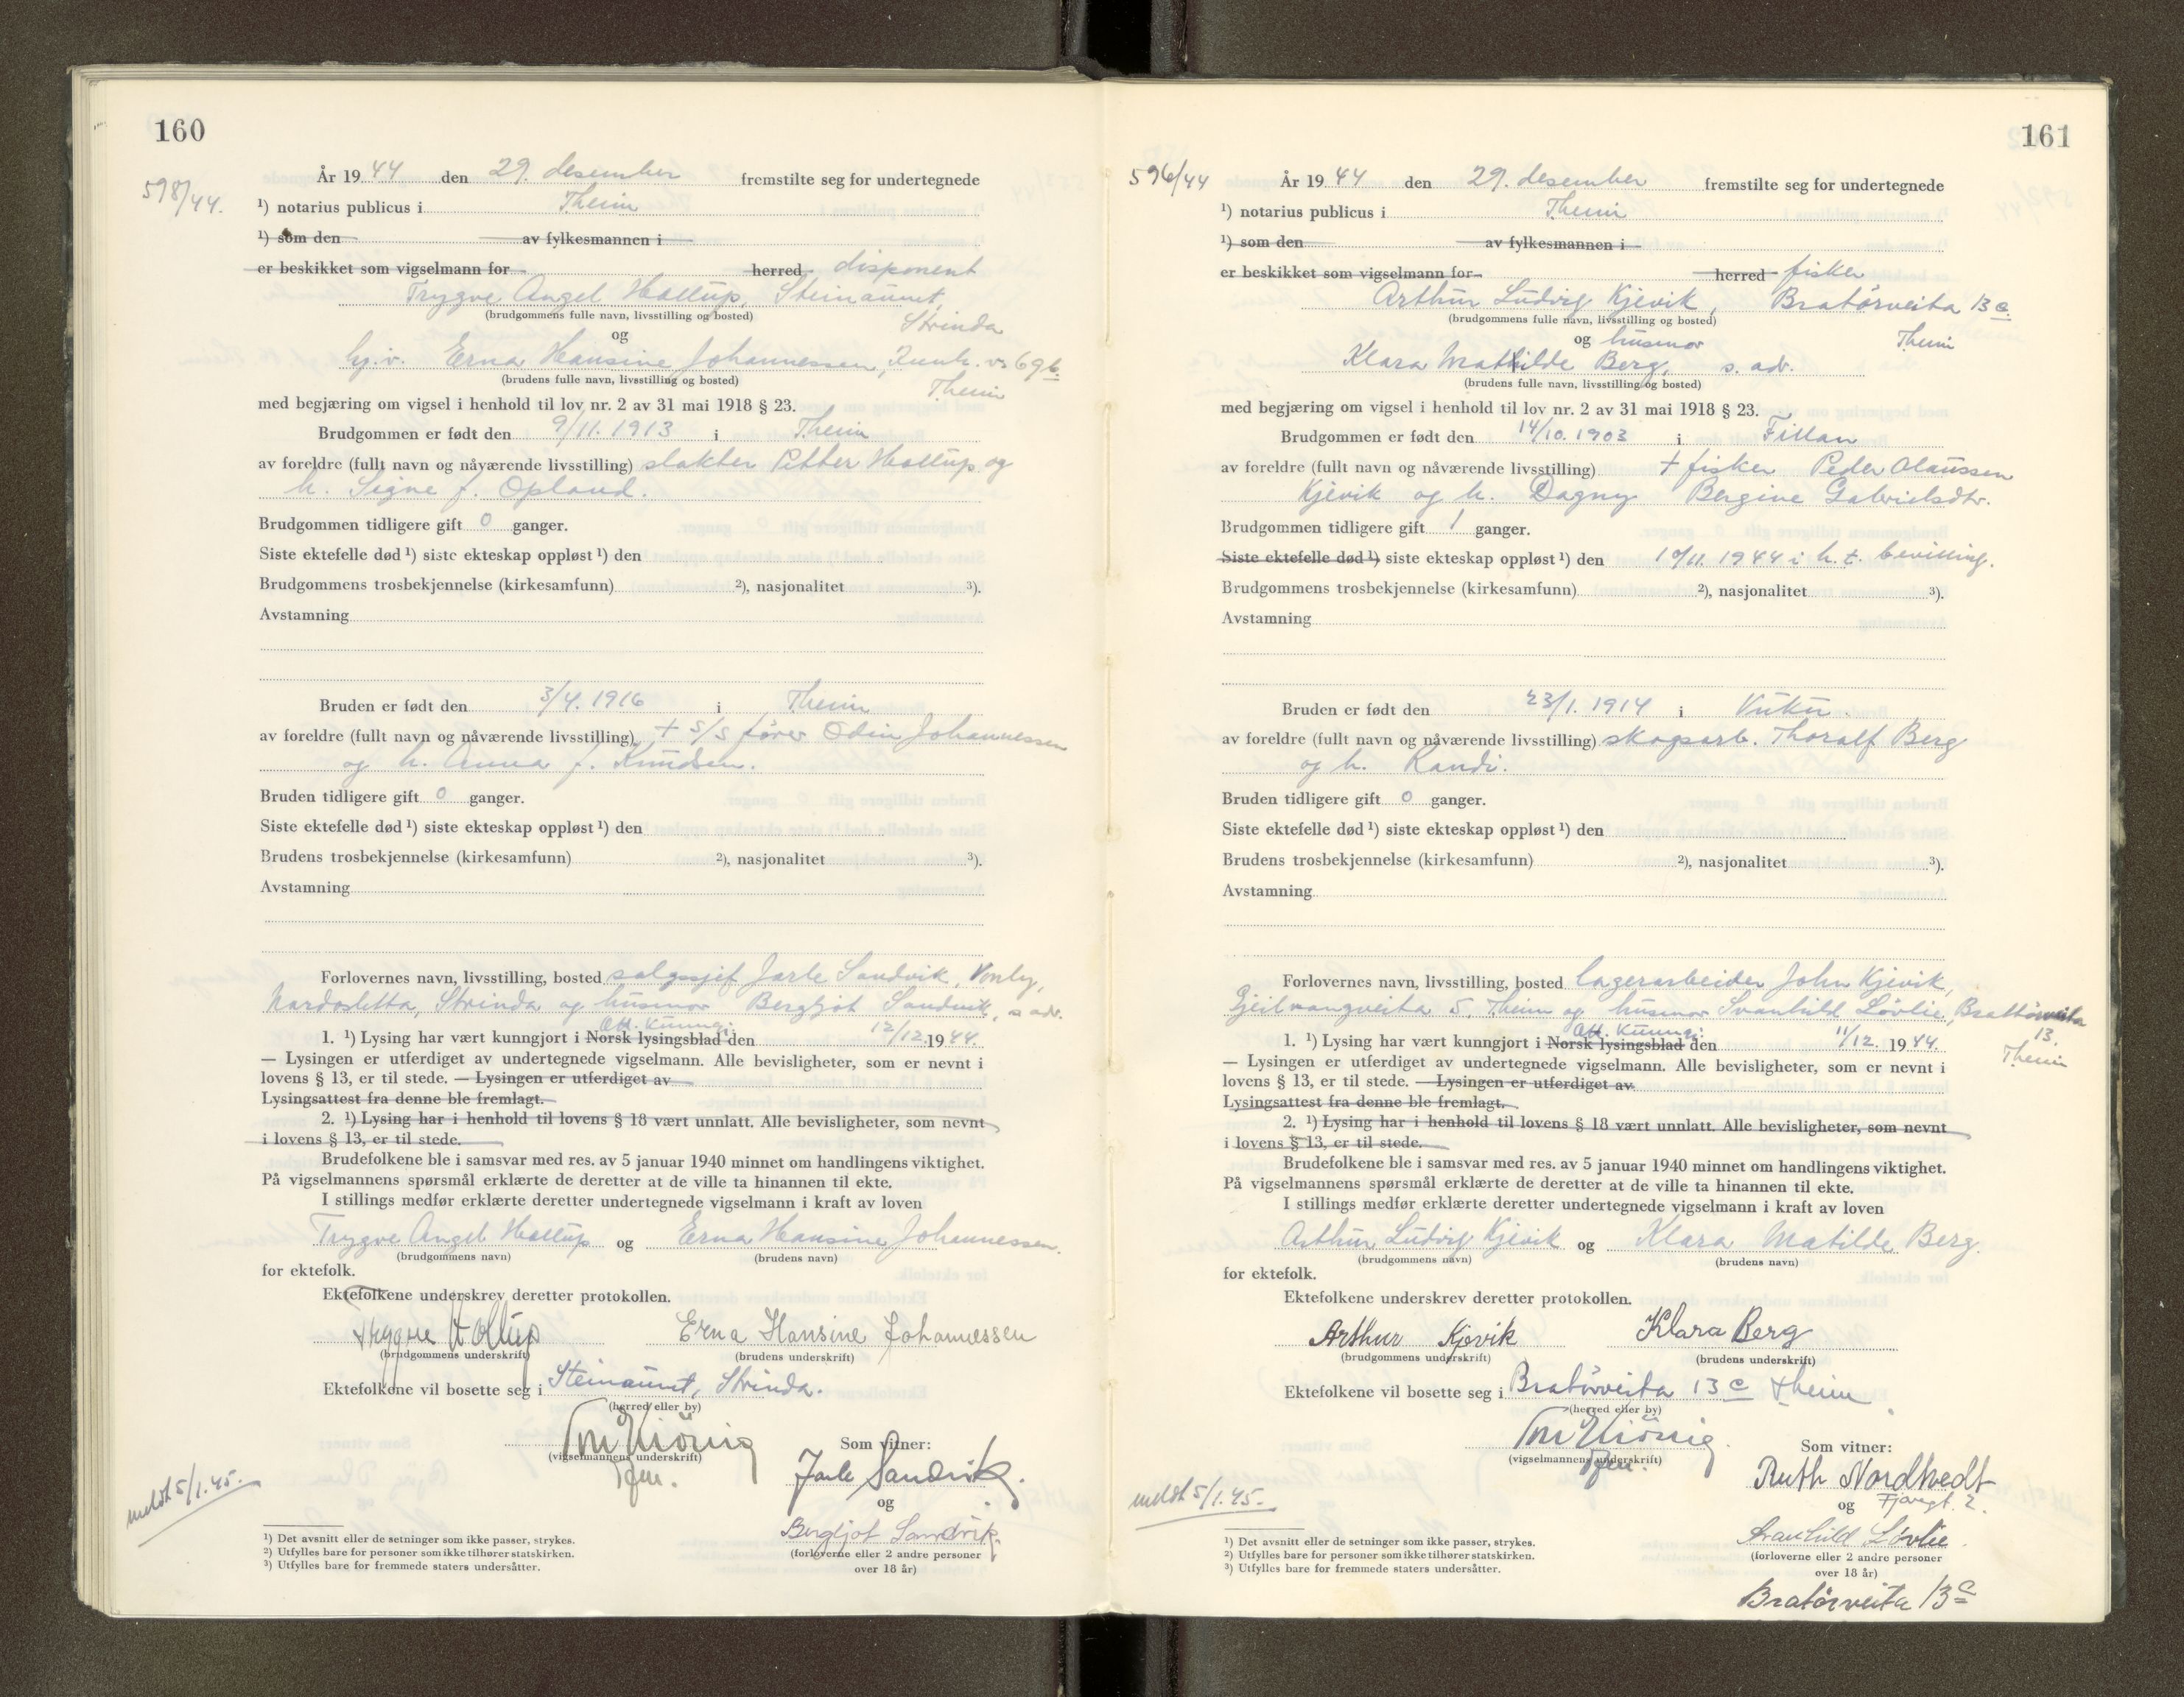 160
598/44.
År 19 44 den 29. desember fremstilte seg for undertegnede
¹) notarius publicus i Theim
¹) som den av fylkesmannen i
er beskikket som vigselmann for herred disponent
Trygve Angel Holtup, Steinaunet,
(brudgommens fulle navn, livsstilling og bosted)
Strinda
og
hj.v. Erna Hansine Johannessen, v. 69 b.
(brudens fulle navn, livsstilling og bosted)
Theim
med begjæring om vigsel i henhold til lov nr. 2 av 31 mai 1918 § 23.
Brudgommen er født den 9/11. 1913 i Theim
av foreldre (fullt navn og nåværende livsstilling) slakter Petter Holtup og
h. Signe f. Opland.
Brudgommen tidligere gift 0 ganger.
Siste ektefelle død ¹) siste ekteskap oppløst ¹) den
Brudgommens trosbekjennelse (kirkesamfunn) ²), nasjonalitet ³).
Avstamning
Bruden er født den 3/4. 1916 i Theim
av foreldre (fullt navn og nåværende livsstilling) + S/S fører Odin Johannessen
og h. Anna f. Knudsen.
Bruden tidligere gift 0 ganger.
Siste ektefelle død ¹) siste ekteskap oppløst ¹) den
Brudens trosbekjennelse (kirkesamfunn) ²), nasjonalitet ³).
Avstamning
Forlovernes navn, livsstilling, bosted salgssjef Jarle Sandvik,
Nardosletta, Strinda og husmor Bergljot Sandvik, s. adr.
Off. Kunng.
1. ¹) Lysing har vært kunngjort i Norsk lysingsblad den 12/12. 19 44.
— Lysingen er utferdiget av undertegnede vigselmann. Alle bevisligheter, som er nevnt i
lovens § 13, er til stede. — Lysingen er utferdiget av
Lysingsattest fra denne ble fremlagt.
2. ¹) Lysing har i henhold til lovens § 18 vært unnlatt. Alle bevisligheter, som nevnt
i lovens § 13, er til stede.
Brudefolkene ble i samsvar med res. av 5 januar 1940 minnet om handlingens viktighet.
På vigselmannens spørsmål erklærte de deretter at de ville ta hinannen til ekte.
I stillings medfør erklærte deretter undertegnede vigselmann i kraft av loven
Trygve Angel Holtup og Erna Hansine Johannessen.
(brudgommens navn) (brudens navn)
for ektefolk.
Ektefolkene underskrev deretter protokollen.
Trygve Holtup Erna Hansine Johannessen
(brudgommens underskrift) (brudens underskrift)
Ektefolkene vil bosette seg i Steinaunet, Strinda.
(herred eller by)
(vigselmannens underskrift)
Som vitner:
Jarle Sandvik.
og
Bergljot Sandvik.
(forloverne eller 2 andre personer
over 18 år)
meldt 5/1.45.
¹) Det avsnitt eller de setninger som ikke passer, strykes.
²) Utfylles bare for personer som ikke tilhører statskirken.
³) Utfylles bare for fremmede staters undersåtter.
161
596/44
År 19 44 den 29. desember fremstilte seg for undertegnede
¹) notarius publicus i Theim
¹) som den av fylkesmannen i
er beskikket som vigselmann for herred fisker
Arthur Ludvig Kjevik, Bratørveita 13 c.
(brudgommens fulle navn, livsstilling og bosted)
og husmor Theim
Klara Matilde Berg, s. adr.
(brudens fulle navn, livsstilling og bosted)
med begjæring om vigsel i henhold til lov nr. 2 av 31 mai 1918 § 23.
Brudgommen er født den 14/10. 1903 i Fillan
av foreldre (fullt navn og nåværende livsstilling) + fisker Peder Olaussen
Kjevik og h. Dagny Bergine Gabrielsdtr.
Brudgommen tidligere gift 1 ganger.
Siste ektefelle død ¹) siste ekteskap oppløst ¹) den 10/11. 1944 i h. t. bevilling.
Brudgommens trosbekjennelse (kirkesamfunn) ²), nasjonalitet ³).
Avstamning
Bruden er født den 23/1. 1914 i Vuku.
av foreldre (fullt navn og nåværende livsstilling) skogsarb. Thoralf Berg
og h. Randi.
Bruden tidligere gift 0 ganger.
Siste ektefelle død ¹) siste ekteskap oppløst ¹) den
Brudens trosbekjennelse (kirkesamfunn) ²), nasjonalitet ³).
Avstamning
Forlovernes navn, livsstilling, bosted lagerarbeider John Kjevik,
Gjeilvangveita 5, Theim og husmor Svanhild Løvlie, Brattørveita
13,
Theim
Off. Kunng.
1. ¹) Lysing har vært kunngjort i Norsk lysingsblad den 11/12. 19 44.
— Lysingen er utferdiget av undertegnede vigselmann. Alle bevisligheter, som er nevnt i
lovens § 13, er til stede. — Lysingen er utferdiget av
Lysingsattest fra denne ble fremlagt.
2. ¹) Lysing har i henhold til lovens § 18 vært unnlatt. Alle bevisligheter, som nevnt
i lovens § 13, er til stede.
Brudefolkene ble i samsvar med res. av 5 januar 1940 minnet om handlingens viktighet.
På vigselmannens spørsmål erklærte de deretter at de ville ta hinannen til ekte.
I stillings medfør erklærte deretter undertegnede vigselmann i kraft av loven
Arthur Ludvig Kjevik og Klara Matilde Berg.
(brudgommens navn) (brudens navn)
for ektefolk.
Ektefolkene underskrev deretter protokollen.
Arthur Kjevik Klara Berg
(brudgommens underskrift) (brudens underskrift)
Ektefolkene vil bosette seg i Bratørveita 13 c Theim.
(herred eller by)
(vigselmannens underskrift)
Som vitner:
Ruth Nordtvedt
og Fjærgt. 2.
Svanhild Løvlie.
(forloverne eller 2 andre personer
over 18 år)
Bratørveita 13 c
meldt 5/1.45.
¹) Det avsnitt eller de setninger som ikke passer, strykes.
²) Utfylles bare for personer som ikke tilhører statskirken.
³) Utfylles bare for fremmede staters undersåtter.